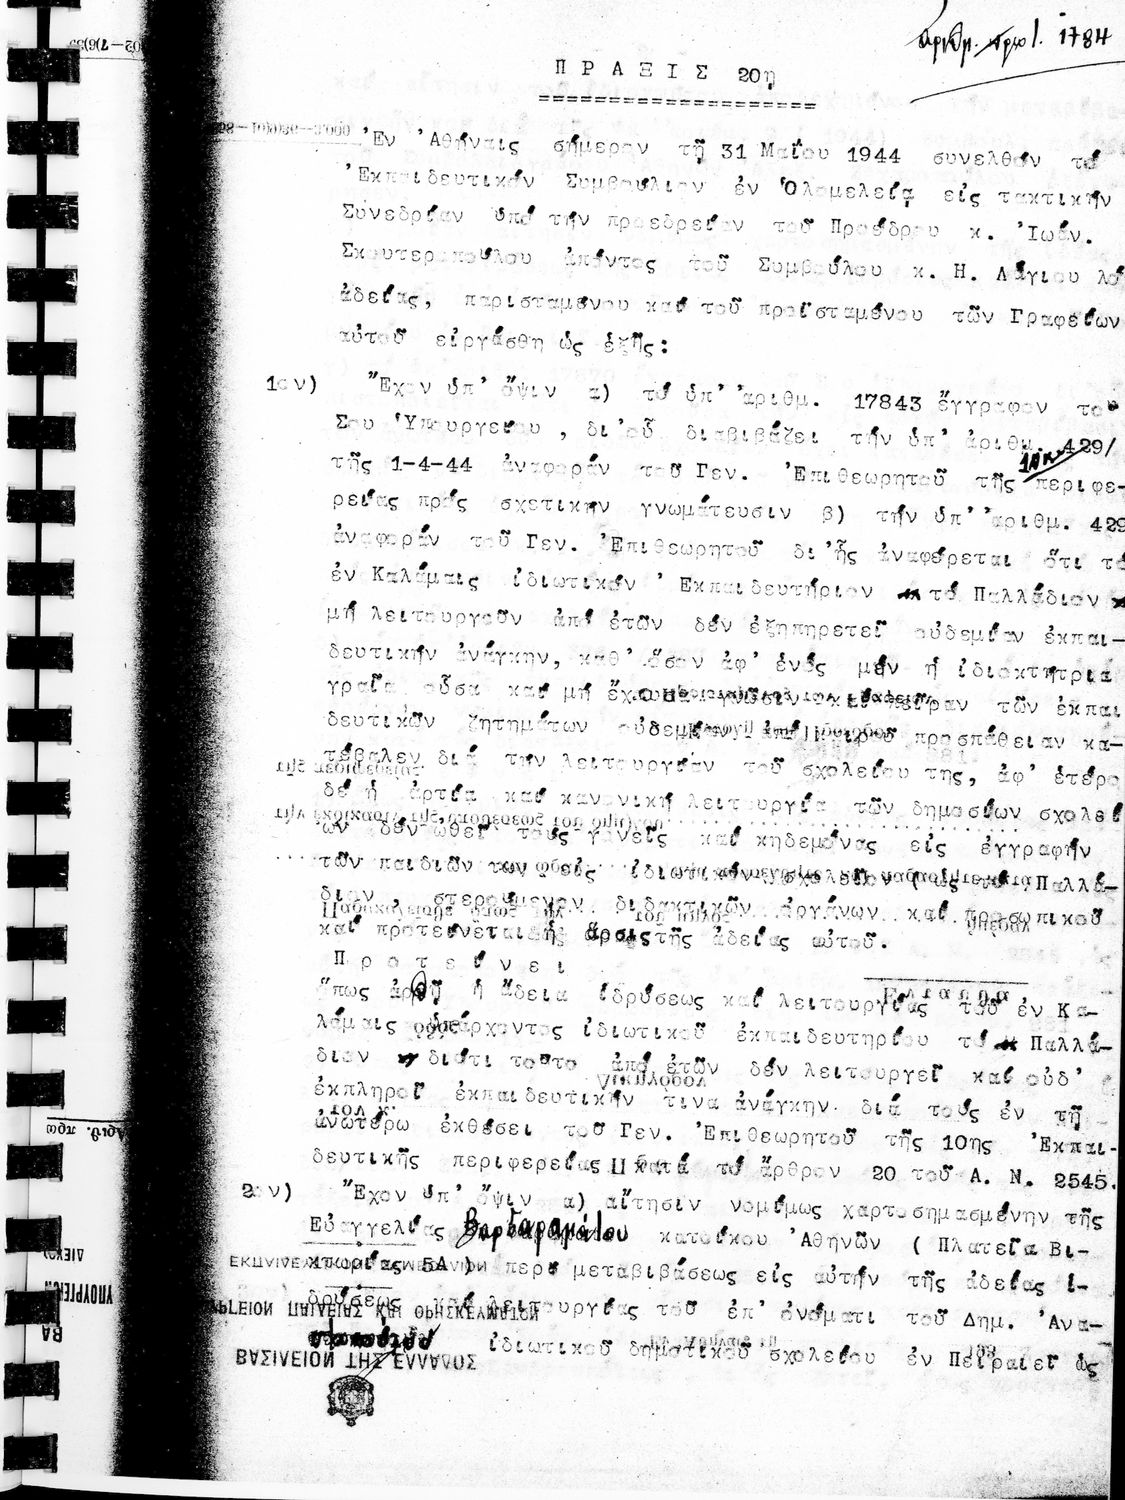 ἀριθμ. πρωτ. 1784
ΠΡΑΞΙΣ 20ὴ
Ἐν Ἀθήναις σήμερον τῇ 31 Μαΐου 1944 συνελθόν τό
Ἐκπαιδευτικόν Συμβούλιον ἐν Ὁλομελείᾳ εἰς τακτικήν
Συνεδρίαν ὑπό τήν προεδρείαν τοῦ Προέδρου κ. Ἰωάν.
Σκουτεροπούλου ἀπόντος τοῦ Συμβούλου κ. Η. Λάγιου λό
ἀδείας, παρισταμένου καί τοῦ προϊσταμένου τῶν Γραφείων
αὐτοῦ εἰργάσθη ὡς ἑξῆς:
1ον) Ἔχον ὑπ' ὄψιν α) τό ὑπ' ἀριθμ. 17843 ἔγγραφον του
Σου Ὑπουργείου , δι'οὗ διαβιβάζει τήν ὑπ' ἀριθμ. 429/
τῆς 1-4-44 ἀναφοράν τοῦ Γεν. Ἐπιθεωρητοῦ τῆς 10ης περιφε-
ρείας πρός σχετικήν γνωμάτευσιν β) τήν ὑπ' ἀριθμ. 429
ἀναφοράν τοῦ Γεν. Ἐπιθεωρητοῦ δι'ἧς ἀναφέρεται ὅτι τό
ἐν Καλάμαις ἰδιωτικόν Ἐκπαιδευτήριον " τό Παλλάδιον "
μή λειτουργοῦν ἀπό ἐτῶν δέν ἐξηπηρετεῖ οὐδεμίαν ἐκπαι-
δευτικήν ἀνάγκην, καθ' ὅσον ἀφ' ἑνός μέν ἡ ἰδιοκτήτρια
γραῖα οὖσα καί μή ἔχουσα γνῶσιν καί πεῖραν τῶν ἐκπαι
δευτικῶν ζητημάτων οὐδεμίαν ἀπό καιροῦ προσπάθειαν κα-
τέβαλεν διά τήν λειτουργίαν τοῦ σχολείου της, ἀφ' ἑτέρο
δέ ἡ ἀρτία καί κανονική λειτουργία τῶν δημοσίων σχολεί
ων δέν ὠθεῖ τούς γονεῖς καί κηδεμόνας εἰς ἐγγραφήν
τῶν παιδιῶν των εἰς ἰδιωτικόν σχολεῖον ( ὡς τό Παλλά-
διον στερούμενον διδακτικῶν ὀργάνων καί προσωπικοῦ
καί προτείνεται ἡ ἄρσις τῆς ἀδείας αὐτοῦ.
Προτείνει
ὅπως ἀρθῇ ἡ ἄδεια ἱδρύσεως καί λειτουργίας τοῦ ἐν Κα-
λάμαις ὑπάρχοντος ἰδιωτικοῦ ἐκπαιδευτηρίου τό " Παλλά-
διον " διότι τοῦτο ἀπό ἐτῶν δέν λειτουργεῖ καί οὐδ'
ἐκπληροῖ ἐκπαιδευτικήν τινα ἀνάγκην διά τούς ἐν τῇ
ἀνωτέρω ἐκθέσει τοῦ Γεν. Ἐπιθεωρητοῦ τῆς 10ης Ἐκπαι-
δευτικῆς περιφερείας κατά τό ἄρθρον 20 τοῦ Α. Ν. 2545.
2ον) Ἔχον ὑπ' ὄψιν α) αἴτησιν νομίμως χαρτοσημασμένην τῆς
Εὐαγγελίας κατοίκου Ἀθηνῶν ( Πλατεῖα Βι-
κτωρίας 5Α ) περί μεταβιβάσεως εἰς αὐτήν τῆς ἀδείας ἱ-
δρύσεως καί λειτουργίας τοῦ ἐπ' ὀνόματι τοῦ Δημ. Ἀνα-
ἰδιωτικοῦ δημοτικοῦ σχολείου ἐν Πειραιεῖ ὡς
ΥΠΟΥΡΓΕΙΟΝ ΠΑΙΔΕΙΑΣ ΚΑΙ ΘΡΗΣΚΕΥΜΑΤΩΝ
ΒΑΣΙΛΕΙΟΝ ΤΗΣ ΕΛΛΑΔΟΣ